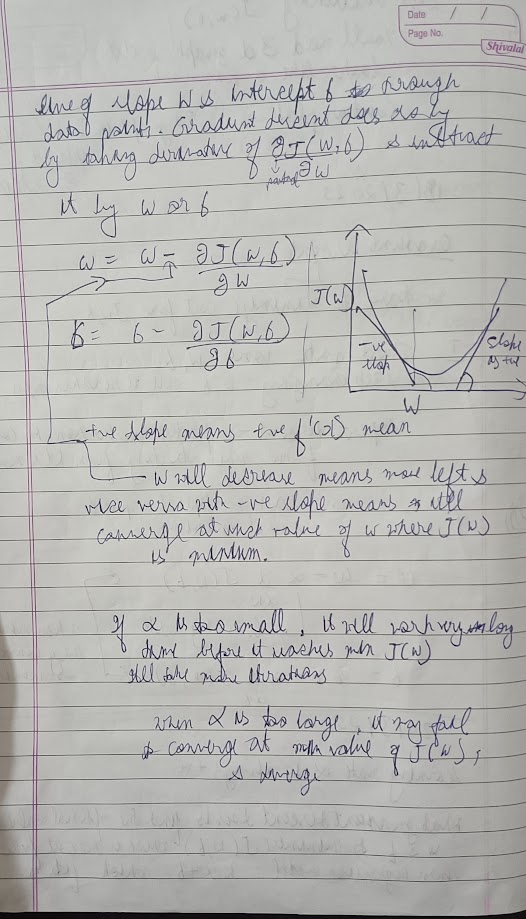 Date / /
Page No.
Shivalal
line of slope W & intercept b to through
data points. Gradient descent does so by
by taking derivative of ∂J(W,b) & subtract
∂W
partial
it by w or b
w = w - ∂J(w,b)
∂w
b = b - ∂J(w,b)
∂b
J(w)
-ve
slope
slope
is +ve
W
+ve slope means +ve f'(x) mean
W will decrease means move left &
vice versa with -ve slope means it'll
converge at such value of w where J(w)
is minimum.
If α is too small, it will work very long
time before it reaches min J(w)
it'll take more iterations
when α is too large, it may fail
to converge at min value of J(w),
& diverge